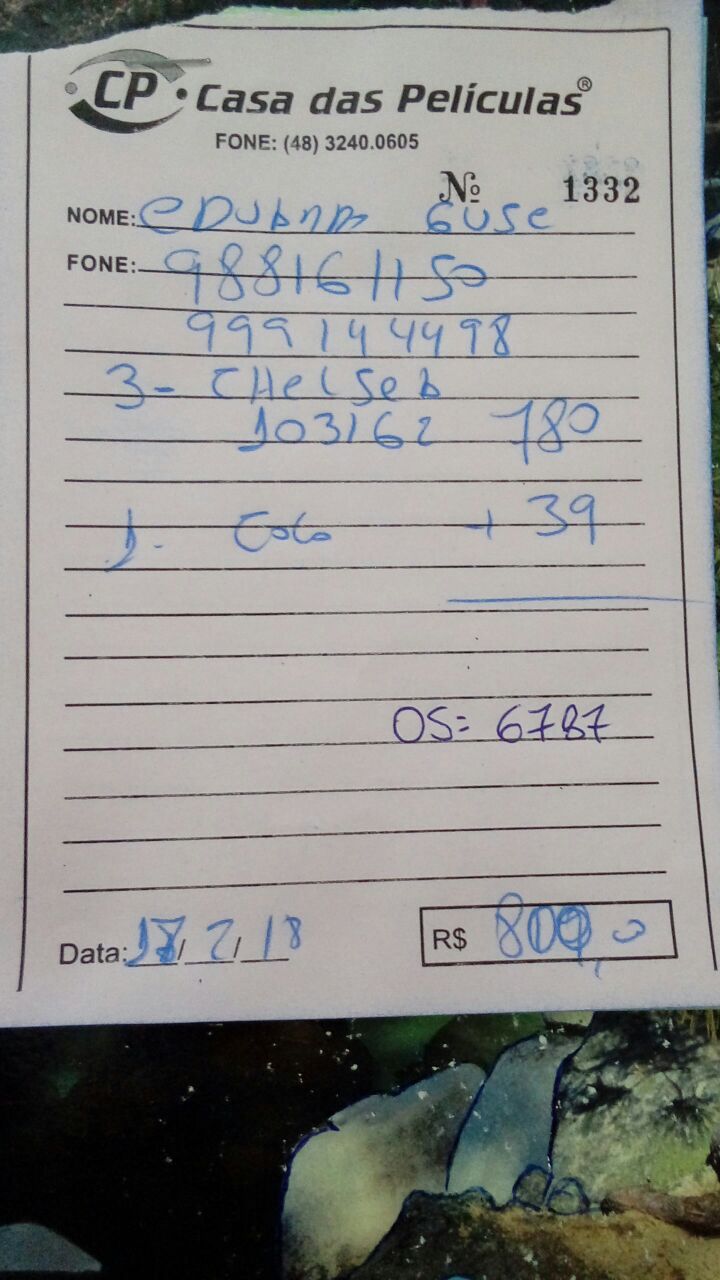 CP Casa das Películas®
FONE: (48) 3240.0605
Nº 1332
NOME: GUSE
FONE: 988161150
999144498
3- CHELSEA
103162 780
1. Cola + 39
OS= 6787
Data: / 2 / 18
R$